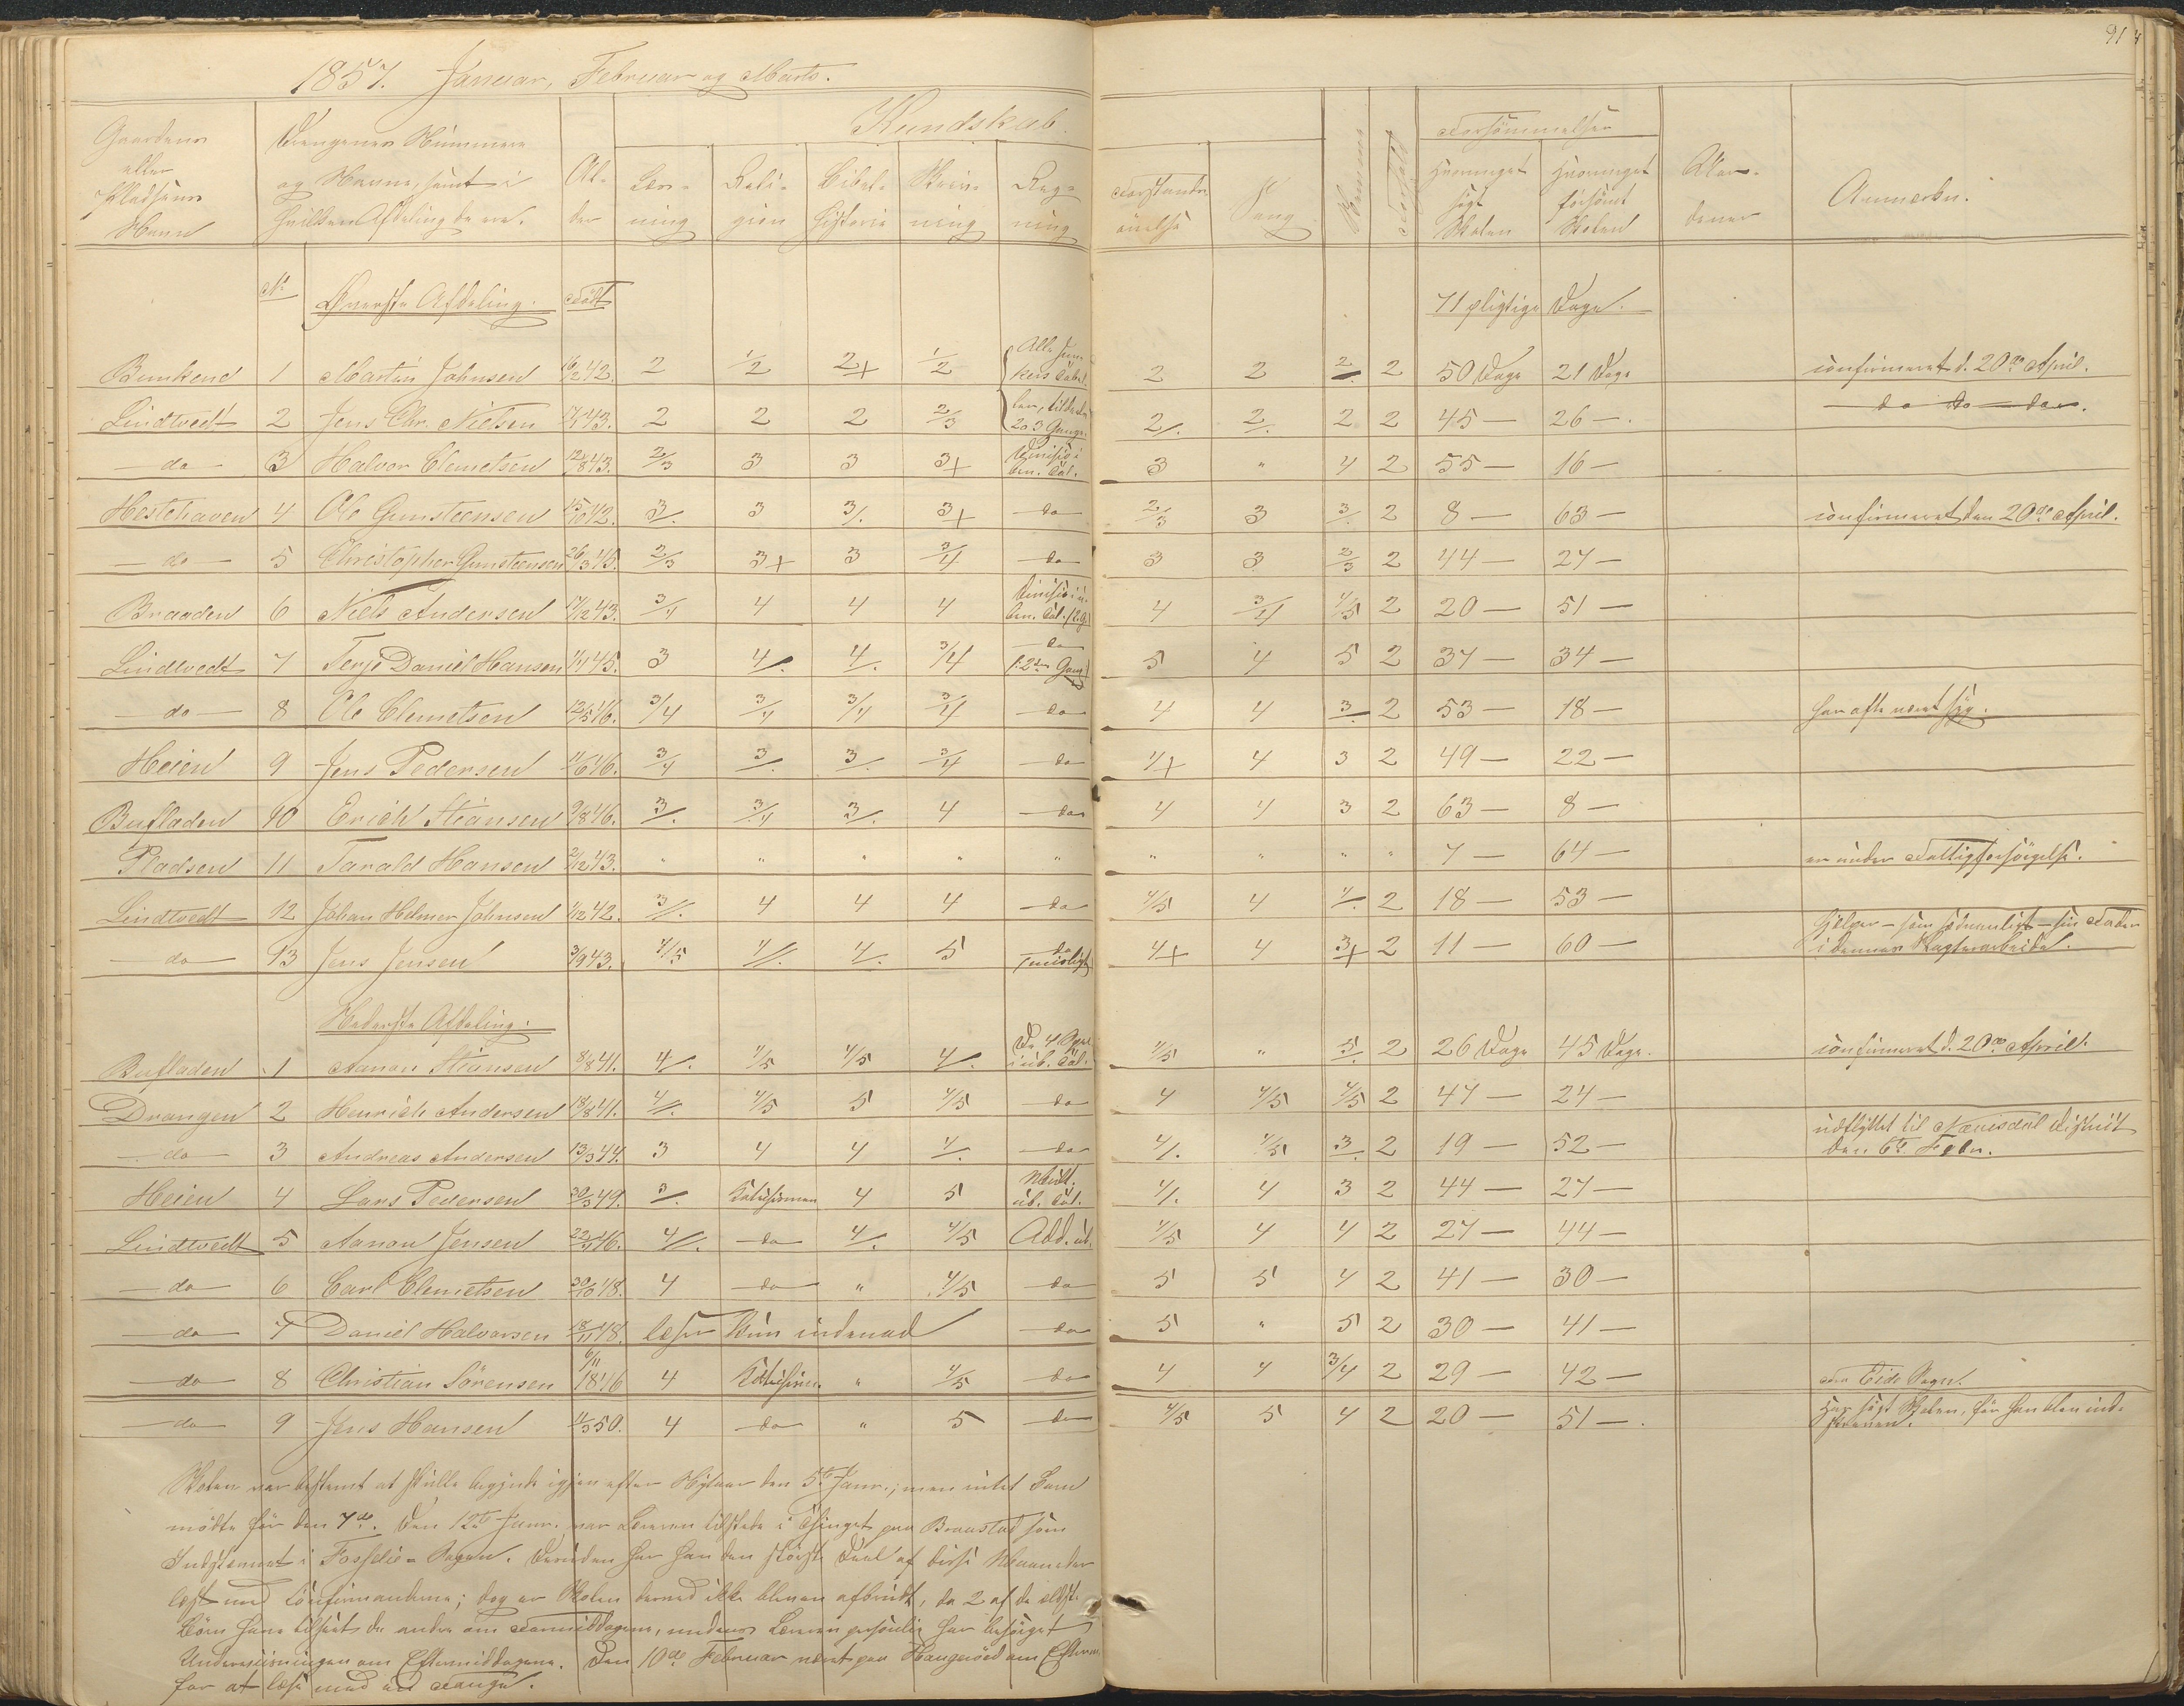 91
1857. Januar, Februar og Marts.
Kundskab.
Gaardens eller Pladsens Navn | Drengenes Nummere og Navne, samt i hvilken Afdeling de ere. | Alder | Læsning | Religion | Bibelhistorie | Skrivning | Regning | Forstandsøvelse | Sang | Forsömmelser | Hvormeget sögt Skolen | Hvormeget försömt Skolen | Anmærkn.
No | Øverste Afdeling. | Född | 71 pligtige Dage.
Bunkend 1 Martin Johnsen 16/2 42. 2 1/2 2+ 1/2 2 2 2/. 2 50 Dage 21 Dage confirmeret d. 20de April.
Lindtvedt 2 Jens Chr. Nielsen 17/1 43. 2 2 2 2/3 2/. 2/. 2 2 45 — 26 — do do do
do 3 Halvor Clemetsen 12/8 43. 2/3 3 3 3+ 3 " 4 2 55 — 16 —
Hestehaven 4 Ole Gunsteensen 15/10 42. 3/. 3 3/. 3+ do 2/3 3 3/. 2 8 — 63 — confirmeret den 20de April.
do 5 Christopher Gunsteensen 26/3 45. 2/3 3+ 3 3/4 do 3 3 2/3 2 44 — 27 —
Braaden 6 Niels Andersen 17/12 43. 3/4 4 4 4 4 3/4 4/5 2 20 — 51 —
Lindtvedt 7 Terje Daniel Hansen 45. 3 4/. 4/. 3/4 do 5 4 5 2 37 — 34 —
do 8 Ole Clemetsen 12/5 46. 3/4 3/4 3/4 3/4 do 4 4 3/. 2 53 — 18 — har ofte været syg.
Heien 9 Jens Pedersen 46. 3/4 3/. 3/. 3/4 do 4+ 4 3 2 49 — 22 —
Bufladen 10 Erich Stiansen 9/8 46. 3/. 3/4 3/. 4 do 4 4 3 2 63 — 8 —
Pladsen 11 Tarald Hansen 2/12 43. " " " " " " " " " 7 — 64 — er under Fattigforsörgelse.
Lindtvedt 12 Johan Helmer Johnsen 1/12 42. 3//. 4 4 4 do 4/5 4 4/. 2 18 — 53 —
do 13 Jens Jensen 3/9 43. 4/5 4//. 4/. 5 do 4+ 4 3+ 2 11 — 60 — hjelper — som sædvanligt — sin Fader
Nederste Afdeling.
Bufladen 1 Aanon Stiansen 8/8 41. 4/. 4/5 4/5 4/. 4/5 " 5/. 2 26 Dage 45 Dage. confirmeret d. 20de April.
Drangen 2 Henrich Andersen 18/8 41. 4//. 4/5 5 4/5 do 4 4/5 4/5 2 47 — 24 —
do 3 Andreas Andersen 13/3 44. 3 4 4 4/. do 4/. 4/5 3/. 2 19 — 52 — udflyttet til Nævisdal District den 6te Febr.
Heien 4 Lars Pedersen 30/3 49. 3/. Katechismen 4 5 4/. 4 3 2 44 — 27 —
Lindtvedt 5 Aanon Jensen 46. 4//. do 4/. 4/5 Add. ub. 4/5 4 4 2 27 — 44 —
do 6 Carl Clemetsen 30/10 48. 4 do " 4/5 do 5 5 4 2 41 — 30 —
do 7 Daniel Halvorsen 18/11 48. læser kun indenad do 5 " 5 2 30 — 41 —
do 8 Christian Sörensen 6/11 1846 4 " 4/5 do 4 4 3/4 2 29 — 42 — Eide Sogn.
do 9 Jens Hansen 50. 4 do " 5 do 4/5 5 4 2 20 — 51 —. Har sögt Skolen, för han blev indskreven.
Skolen var bestemt at skulle begynde igjen efter Nytaar den 5te Janr.; men intet Barn
mödte för den 7de. Den 12te Janr. var Læreren tilstede i Thinget paa Braastad som
Indstevnet i Fosselie-Sagen. Desuden har han den störste Deel af disse Maaneder
læst med Confirmanderne; dog er Skolen derved ikke bleven afbrudt, da 2 af de ældste
Börn have tilseet de andre om Formiddagene, medens Læreren personlig har besörget
Underviisningen om Eftermiddagene. Den 10de Februar været paa Haugeröed om Efterm.
for at læse med en Fange.